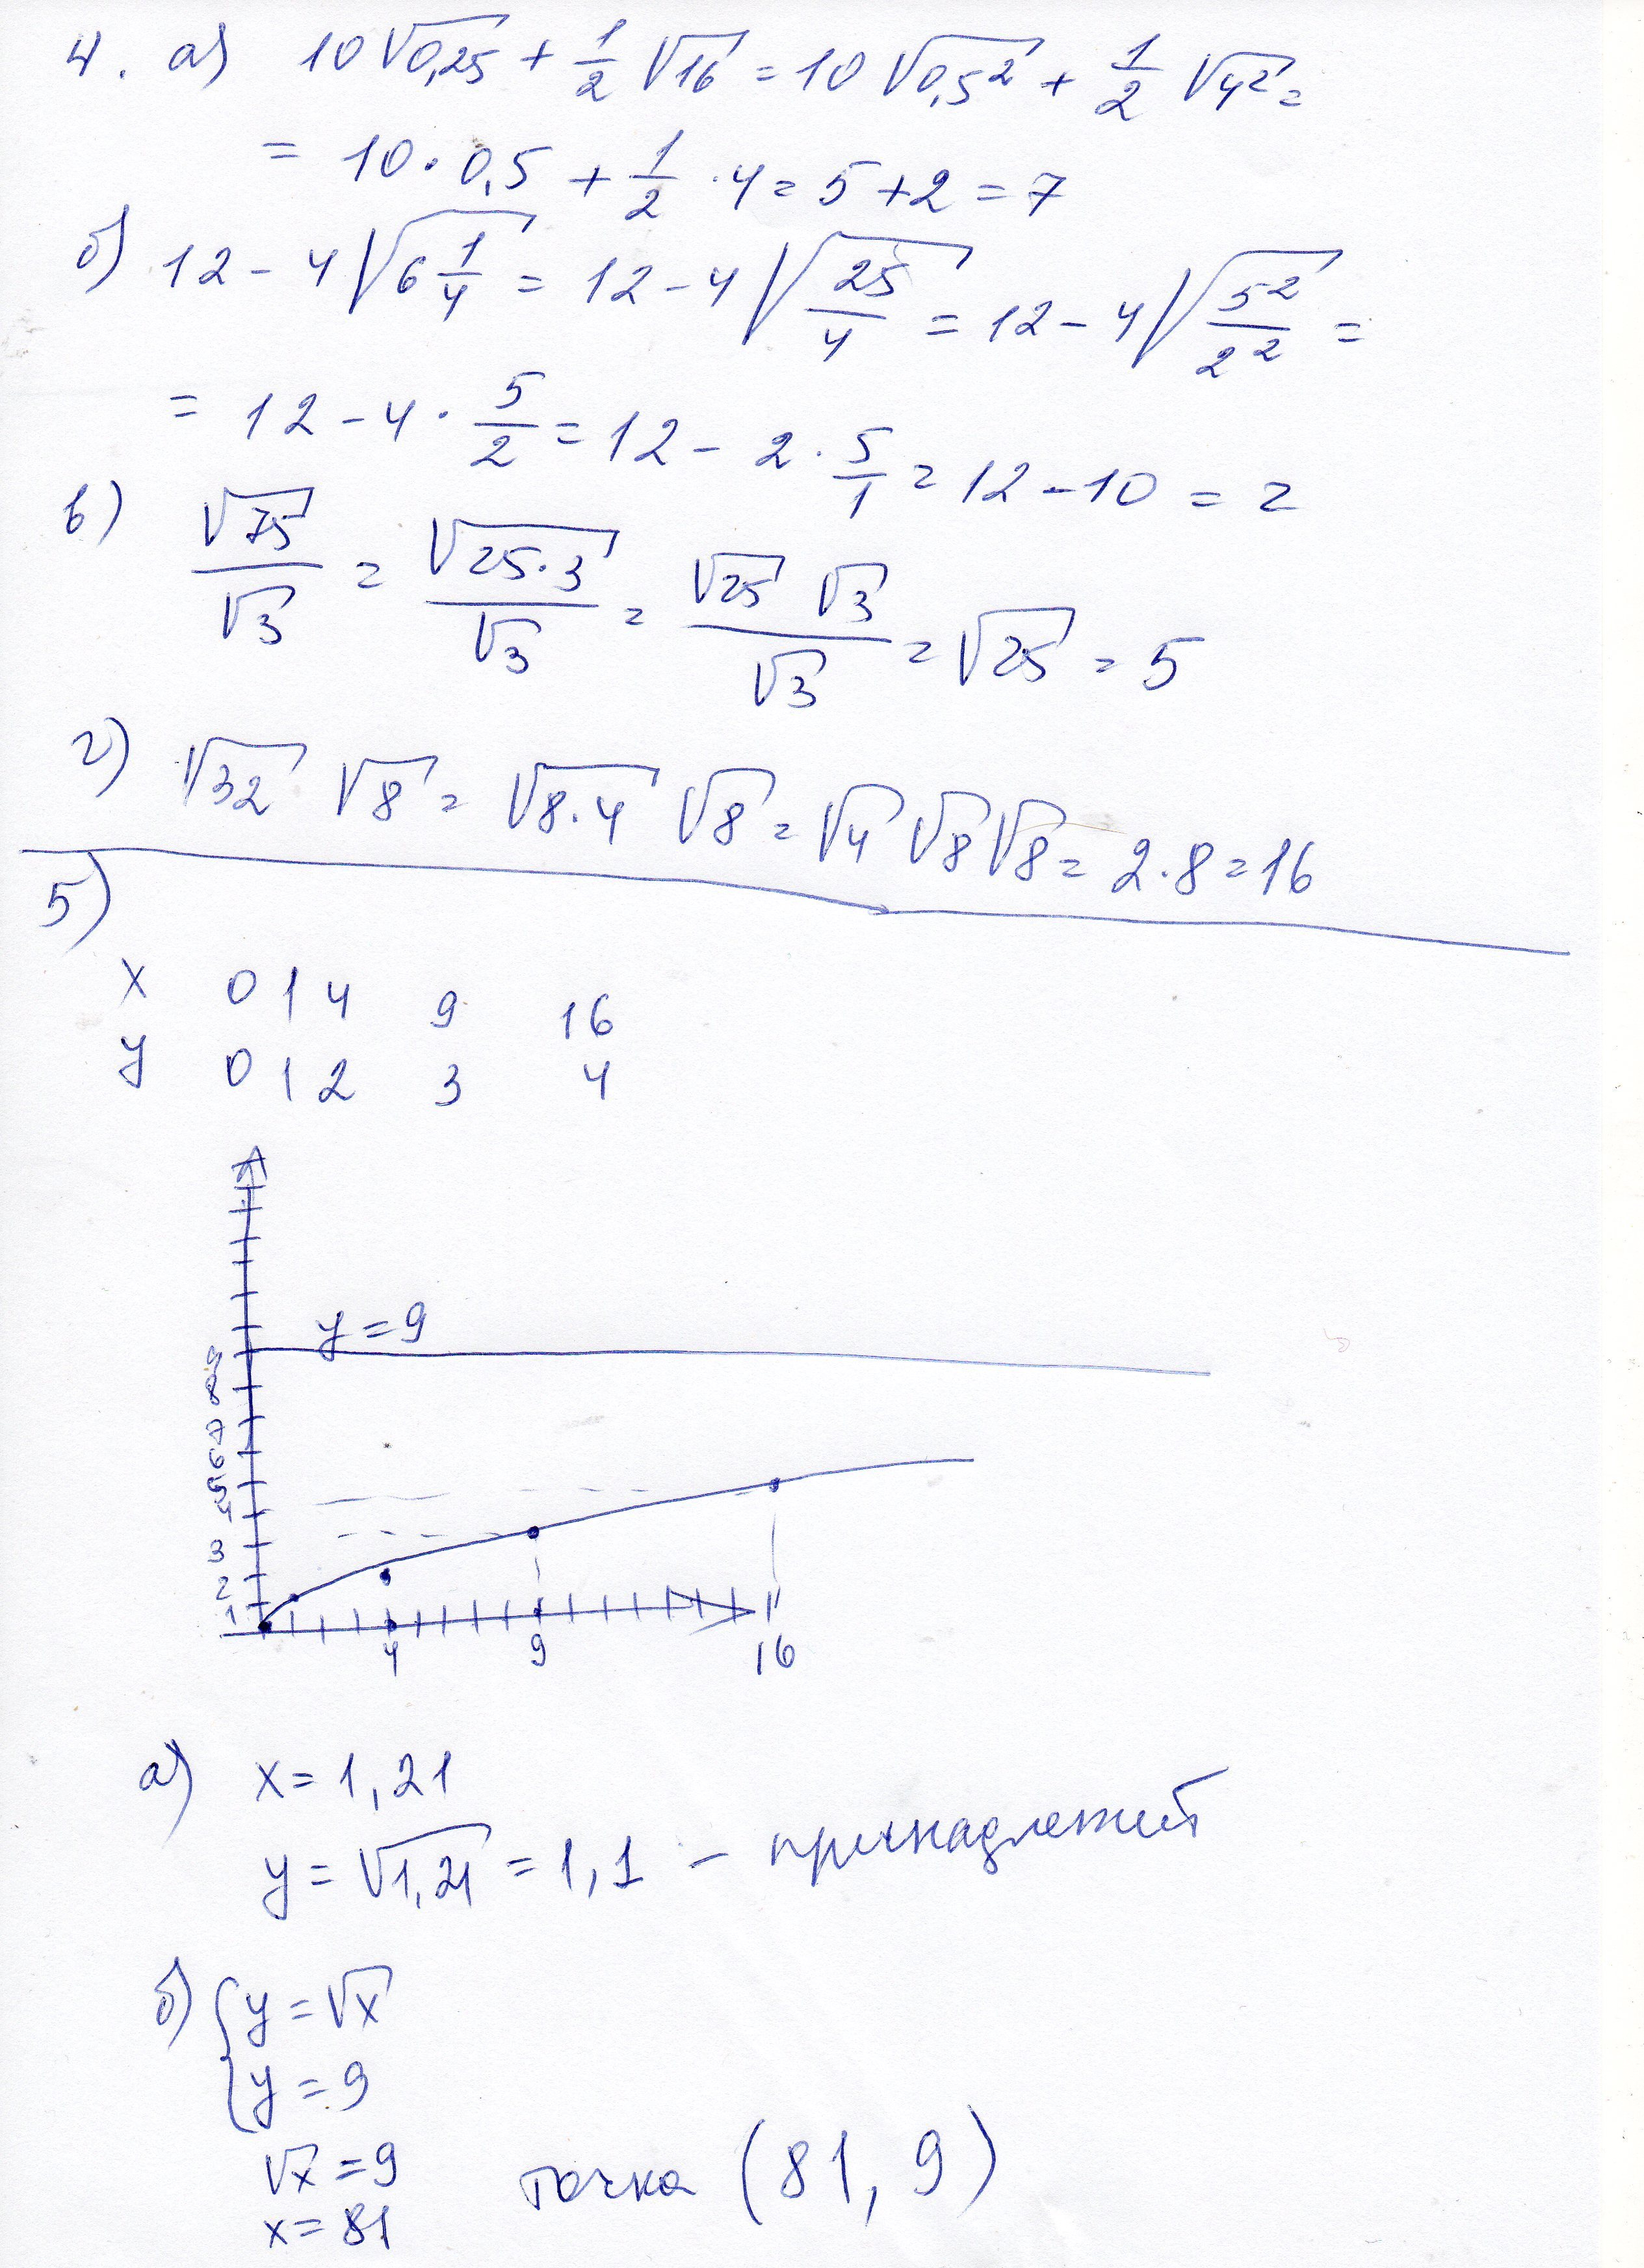 4. а) 10√0,25 + 1/2 √16 = 10 √0,5² + 1/2 √4² =
= 10 · 0,5 + 1/2 · 4 = 5 + 2 = 7
б) 12 - 4 √(6 1/4) = 12 - 4 √(25/4) = 12 - 4 √(5²/2²) =
= 12 - 4 · 5/2 = 12 - 2 · 5/1 = 12 - 10 = 2
в) √75/√3 = √(25·3)/√3 = √25 √3/√3 = √25 = 5
г) √32 √8 = √(8·4) √8 = √4 √8 √8 = 2·8 = 16
5)
x 0 1 4 9 16
y 0 1 2 3 4
y = 9
9
8
7
6
5
4
3
2
1
4 9 16
а) x = 1,21
y = √1,21 = 1,1 – принадлежит
б) { y = √x
y = 9
√x = 9
x = 81
точка (81, 9)